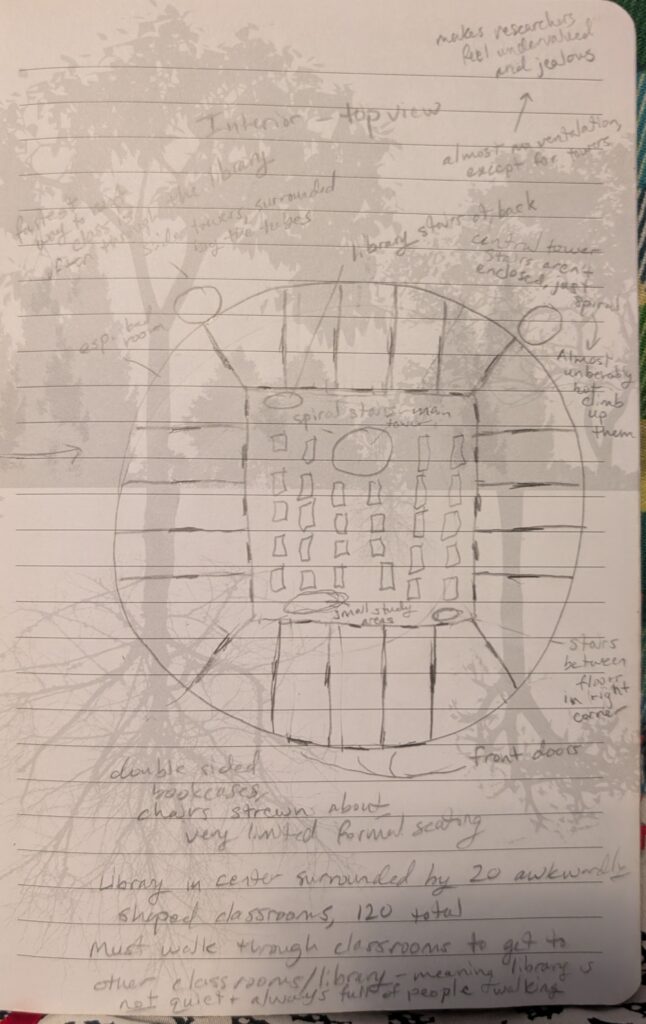 makes researchers
feel undervalued
and jealous
Interior - top view
almost no ventelation,
except for towers
fastest
way to next
class is
often through the library
side towers, surrounded
by the tubes
library stairs at back
central tower
stairs aren't
enclosed, just
spiral
Almost
unberably
hot
climb
up
them
esp. bad
room
spiral stairs - main
tower
small study
areas
stairs
between
floors
in right
corner
front doors
double sided
bookcases,
chairs strewn about
very limited formal seating
Library in center surrounded by 20 awkwardly
shaped classrooms, 120 total
Must walk through classrooms to get to
other classrooms/library - meaning library is
not quiet + always full of people walking